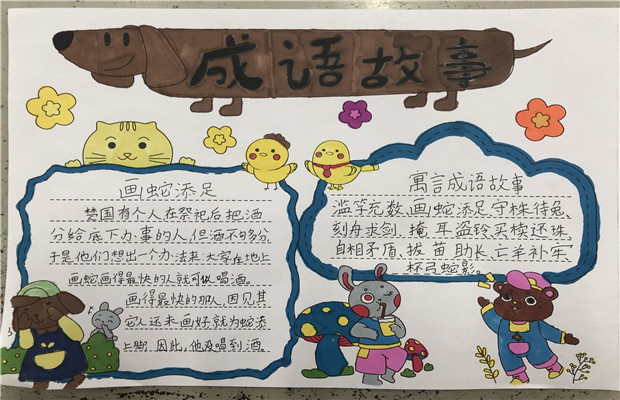 成语故事
画蛇添足
楚国有个人在祭祀后把酒
分给底下办事的人,但酒不够多分
于是他们想出一个办法来大家在地上
画蛇画得最快的人就可以喝酒。
画得最快的那人,因见其
它人还未画好就为蛇添
上脚,因此,他没喝到酒。
寓言成语故事
滥竽充数、画蛇添足、守株待兔、
刻舟求剑、掩耳盗铃、买椟还珠、
自相矛盾、拔苗助长、亡羊补牢、
杯弓蛇影。